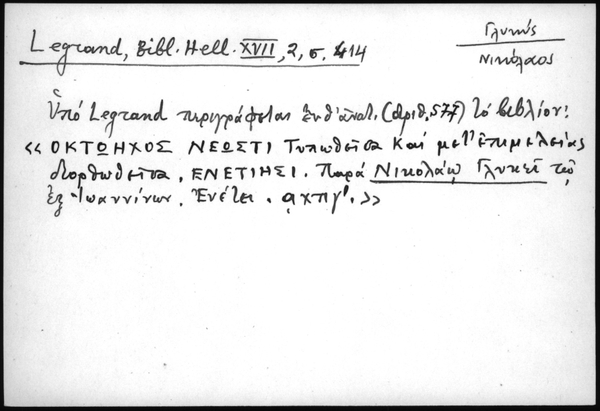 Legrand, Bibl. Hell. XVII, 2, σ. 414
Γλυκύς
Νικόλαος
Ὑπό Legrand περιγράφεται ἐνθ' ἀνωτ. (ἀριθ. 577) τό βιβλίον:
« ΟΚΤΩΗΧΟΣ ΝΕΩΣΤΙ Τυπωθεῖσα καί μετ' ἐπιμελείας
διορθωθεῖσα, ΕΝΕΤΙΗΣΙ. Παρά Νικολάῳ Γλυκεῖ τῷ
ἐξ Ἰωαννίνων. Ἐν ἔτει. αχπγ'. »